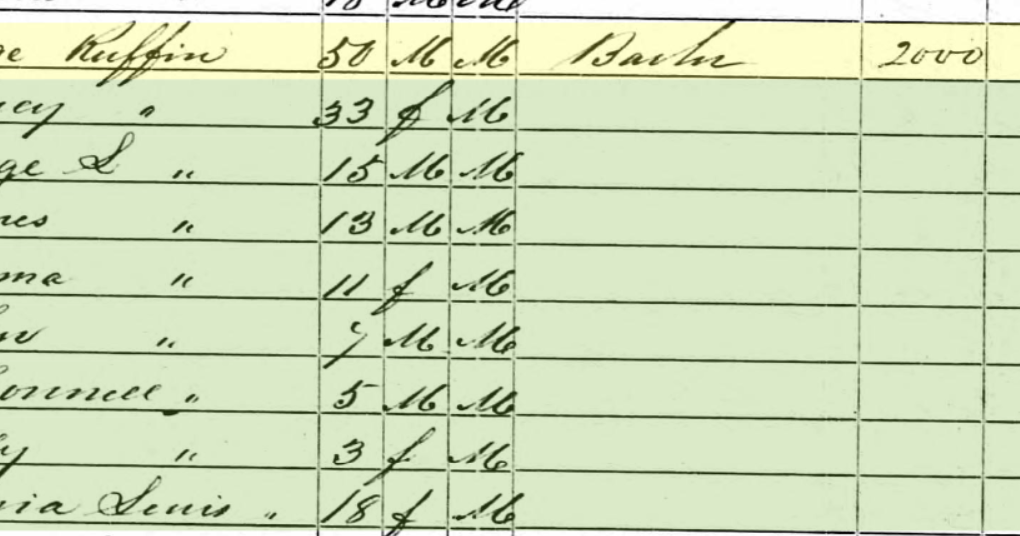 ge Ruffin 50 M M Barber 2000
ncy " 33 f M
ge S " 15 M M
mes " 13 M M
ma " 11 f M
hn " 7 M M
onnell " 5 M M
y " 3 f M
nia Lewis " 18 f M